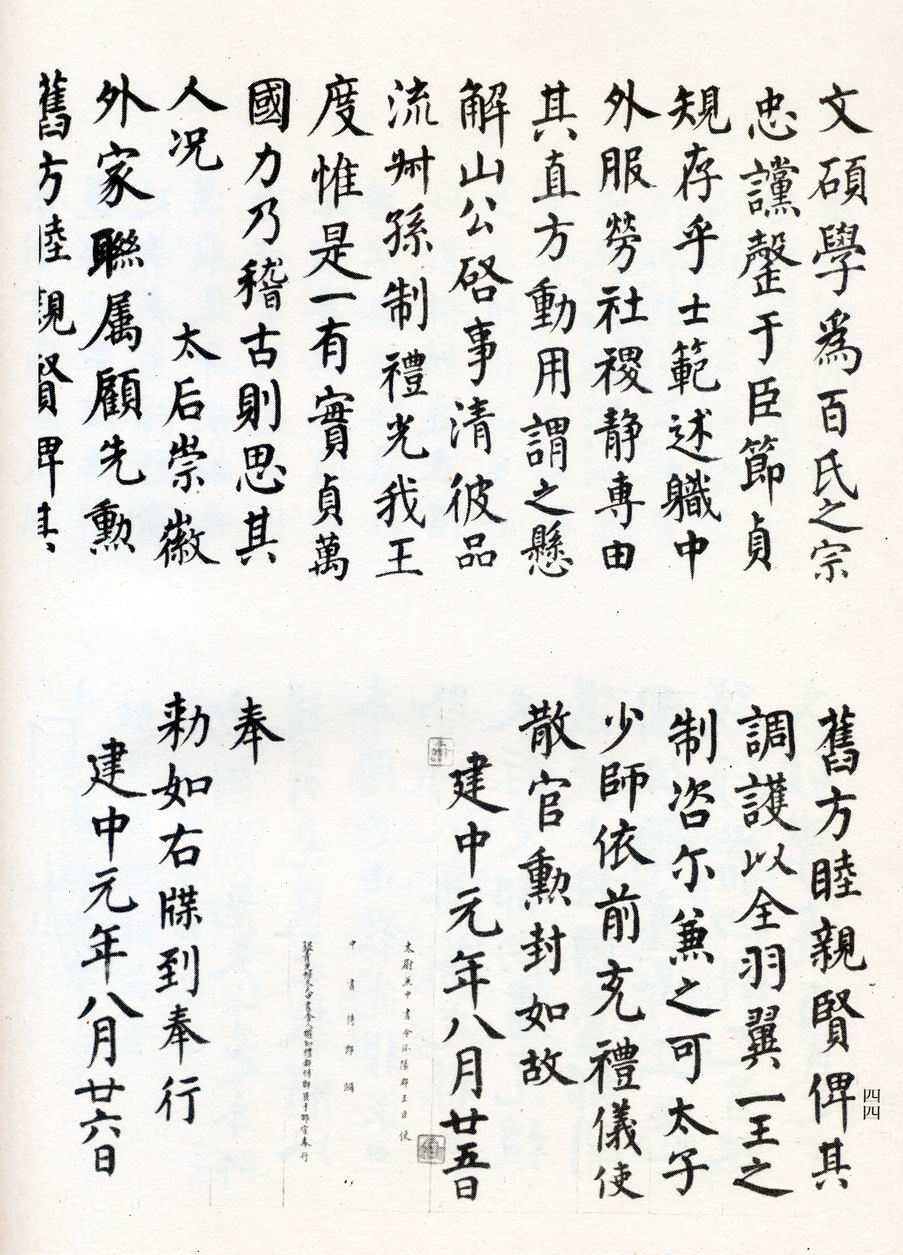 文碩學爲百氏之宗
忠讜罄于臣節貞
規存乎士範述職中
外服勞社稷靜專由
其直方動用謂之懸
解山公啓事清彼品
流叔孫制禮光我王
度惟是一有實貞萬
國力乃稽古則思其
人况　太后崇徽
外家聯屬顧先勳
舊方睦親賢俾其
舊方睦親賢俾其
調護以全羽翼一王之
制咨尔兼之可太子
少師依前充禮儀使
散官勳封如故
建中元年八月廿五日
太尉兼中書令汾陽郡王臣 使
中書侍郎 闕
銀青光祿大夫中書舍人權知禮部侍郎臣于邵宣奉行
奉
勅如右牒到奉行
建中元年八月廿六日
四四